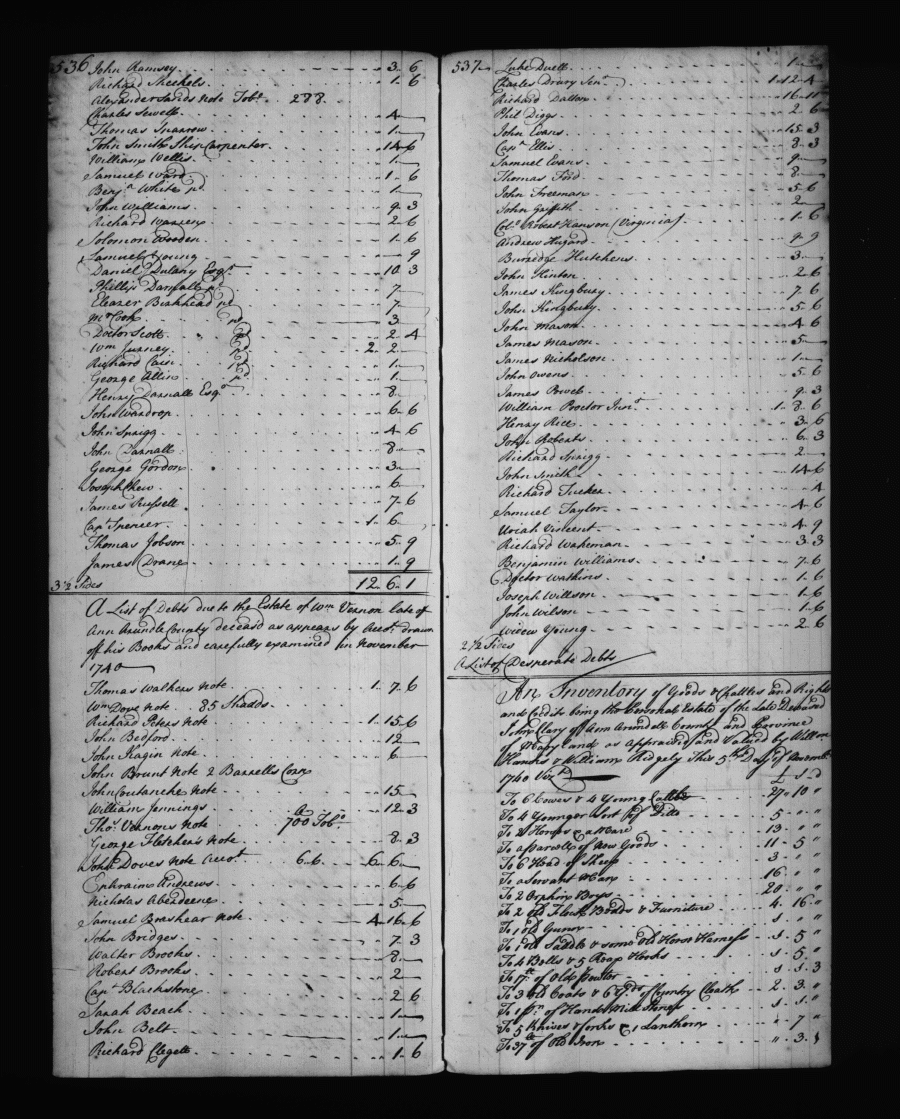 536
John Ramsey 3 6
Richard Sheekels 1 6
Alexander Sands Note Tobo. 288
Charles Sewell 4
Thomas Snarrow 1
John Smith Ship Carpenter 14 6
William Wellis 1
Samuel Ward 1 6
Benja White pd. 1
John Williams 9 3
Richard Warren 2 6
Solomon Wooden 1 6
Samuel Young 9
Daniel Dulany Esqr. 10 3
Phillip Darnall pd 7
Eleazer Birkhead pd 7
Mr Cook pd 3
Doctor Scott pd 2 4
Wm Jurney pd 2 2
Richard Cain pd 1
George Allin pd 1
Henry Darnall Esqr 8
John Wardrop 6 6
John Sprigg 4 6
John Darnall 8
George Gordon 3
Joseph Chew 6
James Russell 7 6
Capt Spencer 1 6
Thomas Jobson 5 9
James Drane 1 9
3 1/2 Sides 12 6 1
A List of Debts due to the Estate of Wm Vernon late of
Ann Arundle County deceasd as appears by Acct. drawn
off his Books and carefully examined in November
1740
Thomas Walkers Note 1 7 6
Wm Dove Note 85 Shadds
Richard Peters Note 1 15 6
John Bedford 12
John Kagin Note 6
John Brunt Note 2 Barrells Corn
John Coutanche Note 15
William Jennings 12 3
Thos. Vernons Note 700 Tobo.
George Fletchers Note 8 3
John Doves Note Acct. 6.6 6 6
Ephraim Andrews 6 6
Nicholas Aberdeene 5
Samuel Brashear Note 4 16 6
John Bridges 7 3
Walter Brooks 8
Robert Brooks 2
Capt Blackstone 2 6
Sarah Beach 1
John Belt 1
Richard Clegett 1 6
537
Luke Duell 1
Charles Drury Senr 1 12 4
Richard Dallon 16 11
Phil Diggs 2 6
John Evans 15 3
Capn Ellis 8 3
Samuel Evans 9
Thomas Ford 8
John Freeman 5 6
John Griffith 2
Colo Robert Hanson (Virginia) 1 6
Andrew Hugard 9 9
Burredge Hutchens 3
John Hinton 2 6
James Kingbury 7 6
John Kingbury 5 6
John Mason 4 6
James Mason 5
James Nicholson 1
John Owens 5 6
James Powel 9 3
William Proctor Junr 1 8 6
Henry Rill 3 6
John Roberts 6 3
Richard Sprigg 2
John Smith 14 6
Richard Tucker 4
Samuel Taylor 4 6
Uriah Vincent 4 9
Richard Wakeman 3 3
Benjamin Williams 7 6
Doctor Watkins 1 6
Joseph Willson 1 6
John Wilson 1 6
Widow Young 2 6
2 1/2 Sides
A List of Desperate Debts
An Inventory of Goods & Chattles and Rights
and Credits being the Personal Estate of the Late Deceased
John Clary of Ann Arundell County and Province
of Maryland as appraised and Valued by William
Hawkins & William Ridgely This 5th Day of Novembr.
1760 Vizt £ S d
To 6 Cowes & 4 Young Cattle 27 10 "
To 4 Younger Sort of Ditto 5 " "
To 2 Horses & a Mare 13 " "
To a parcell of New Goods 11 5 "
To 6 Head of Sheep 3 " "
To a Servant Man 16 " "
To 2 Orphin Boys 20 " "
To 2 Old Flock Beads & Furniture 4 16 "
To 1 old Gunn 1 " "
To 1 old Saddle & some old Horse Harness 1 5 "
To 4 Bells & 5 Reap Hooks 1 5 "
To 17lb of Old Pewter 1 1 3
To 3 old Coats & 6 Yds of Cloath 2 3 "
To 1 Pr of Hand Mill Stones 1 1 "
To 5 Knives & forks & 1 Lanthorn " 7 "
To 37lb of Old Iron " 3 1